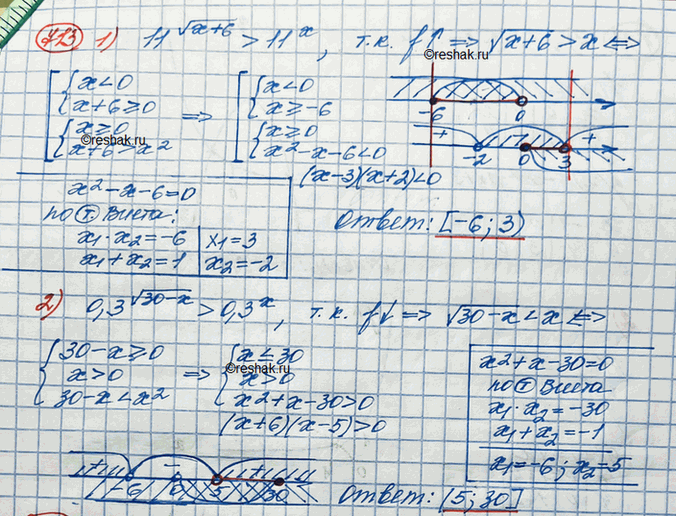 713 1) 11^√(x+6) > 11^x, т.к. f↑ => √(x+6) > x <=>
©reshak.ru
[ { x<0
{ x+6≥0
{ x≥0
{ x+6>x²
=> [ { x<0
{ x≥-6
{ x≥0
{ x²-x-6<0
(x-3)(x+2)<0
©reshak.ru
-6 0
+ - +
-2 0 3
x²-x-6=0
по т Виета:
x₁·x₂=-6 | x₁=3
x₁+x₂=1 | x₂=-2
Ответ: [-6; 3)
2) 0,3^√(30-x) > 0,3^x, т.к. f↓ => √(30-x) < x <=>
{ 30-x≥0
{ x>0
{ 30-x<x²
=> { x≤30
{ x>0
{ x²+x-30>0
(x+6)(x-5)>0
©reshak.ru
x²+x-30=0
по т Виета
x₁·x₂=-30
x₁+x₂=-1
x₁=-6; x₂=5
+ - +
-6 0 5 30
Ответ: (5; 30]